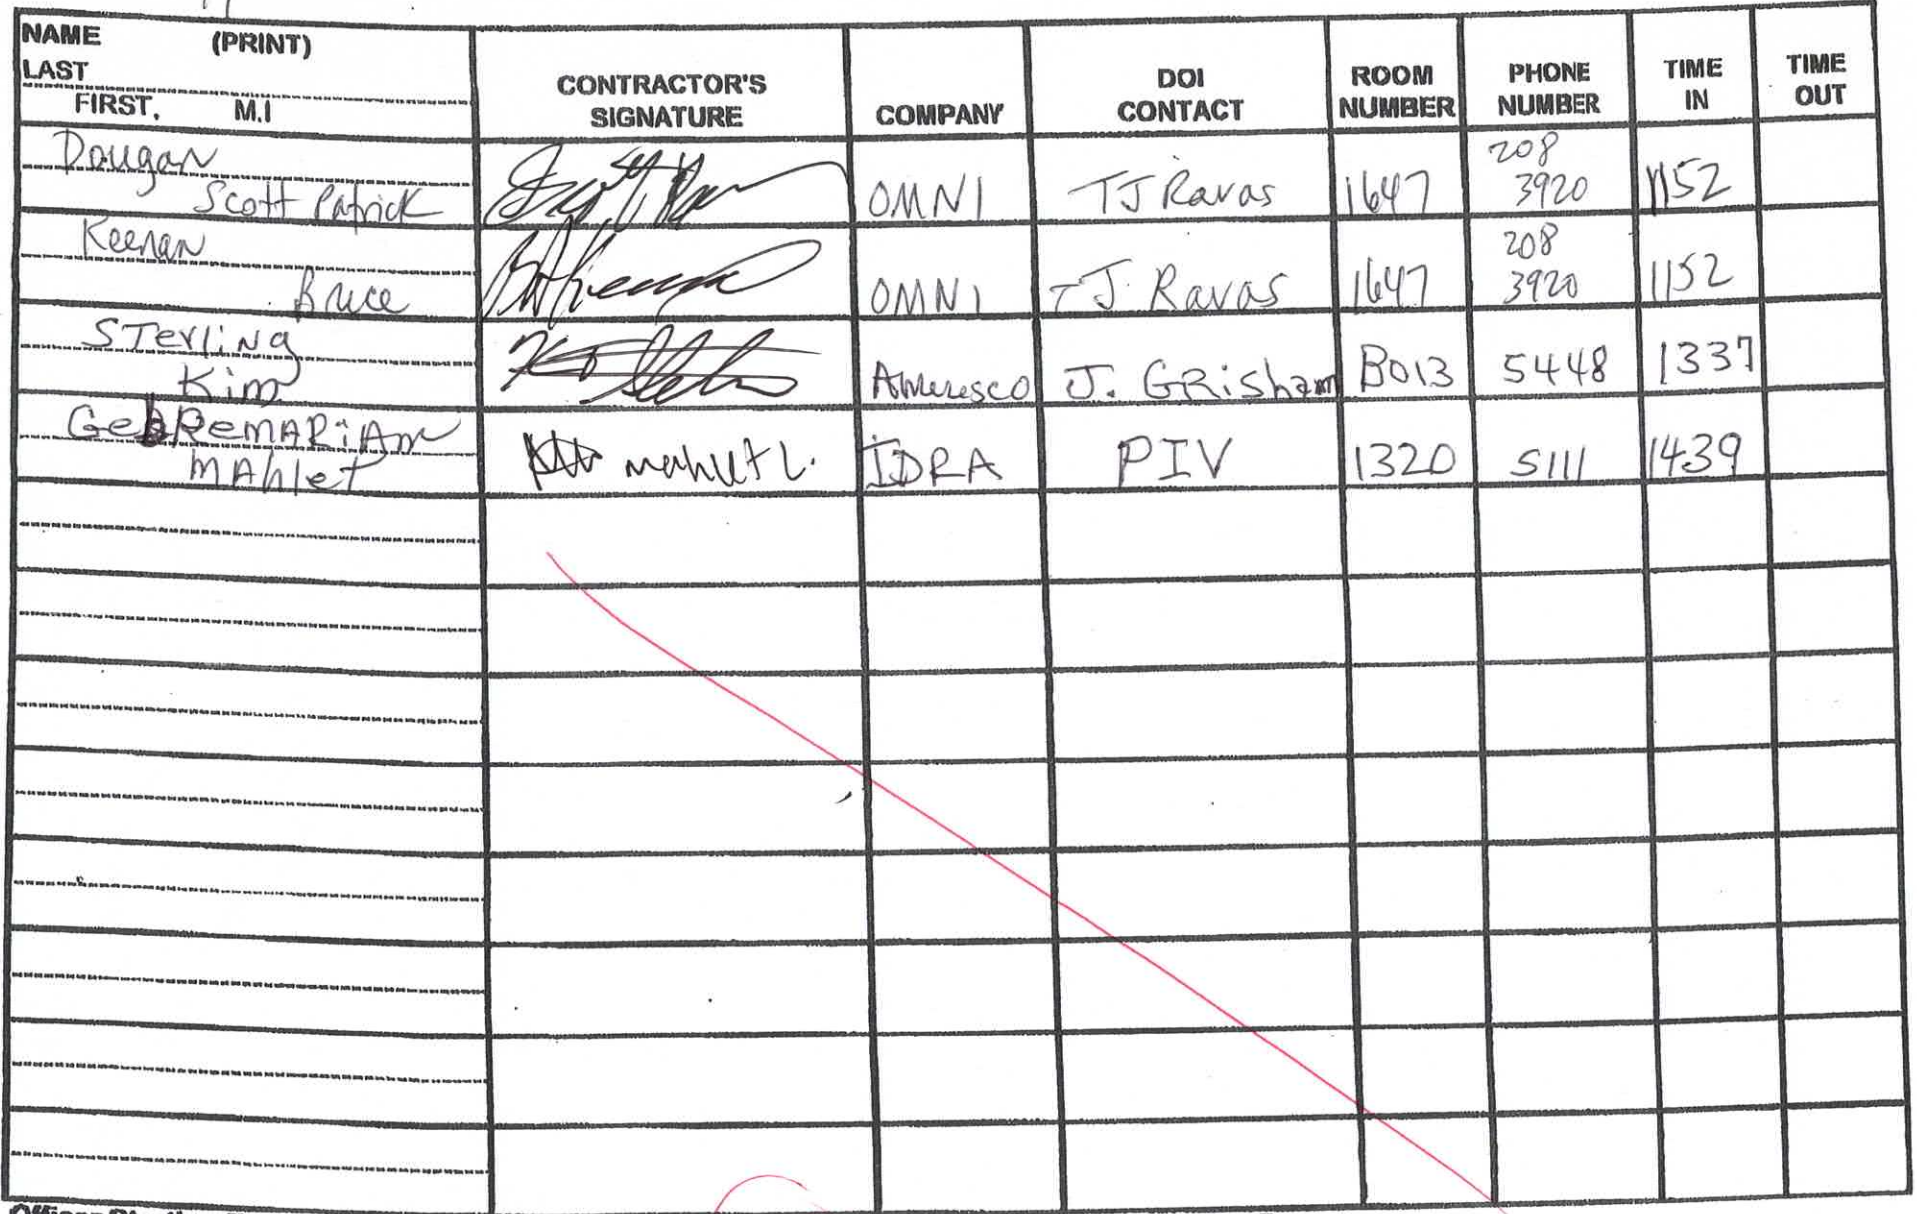 NAME (PRINT)
LAST
FIRST, M.I
CONTRACTOR'S
SIGNATURE
COMPANY
DOI
CONTACT
ROOM
NUMBER
PHONE
NUMBER
TIME
IN
TIME
OUT
Dougan
Scott Patrick
OMNI
TJ Ravas
1647
208
3920
1152
Keenan
Bruce
OMNI
TJ. Ravas
1647
208
3920
1152
STerliNg
Kim
Ameresco
J. GRisham
B013
5448
1337
GebRemARiAm
MAhlet
IDRA
PIV
1320
5111
1439